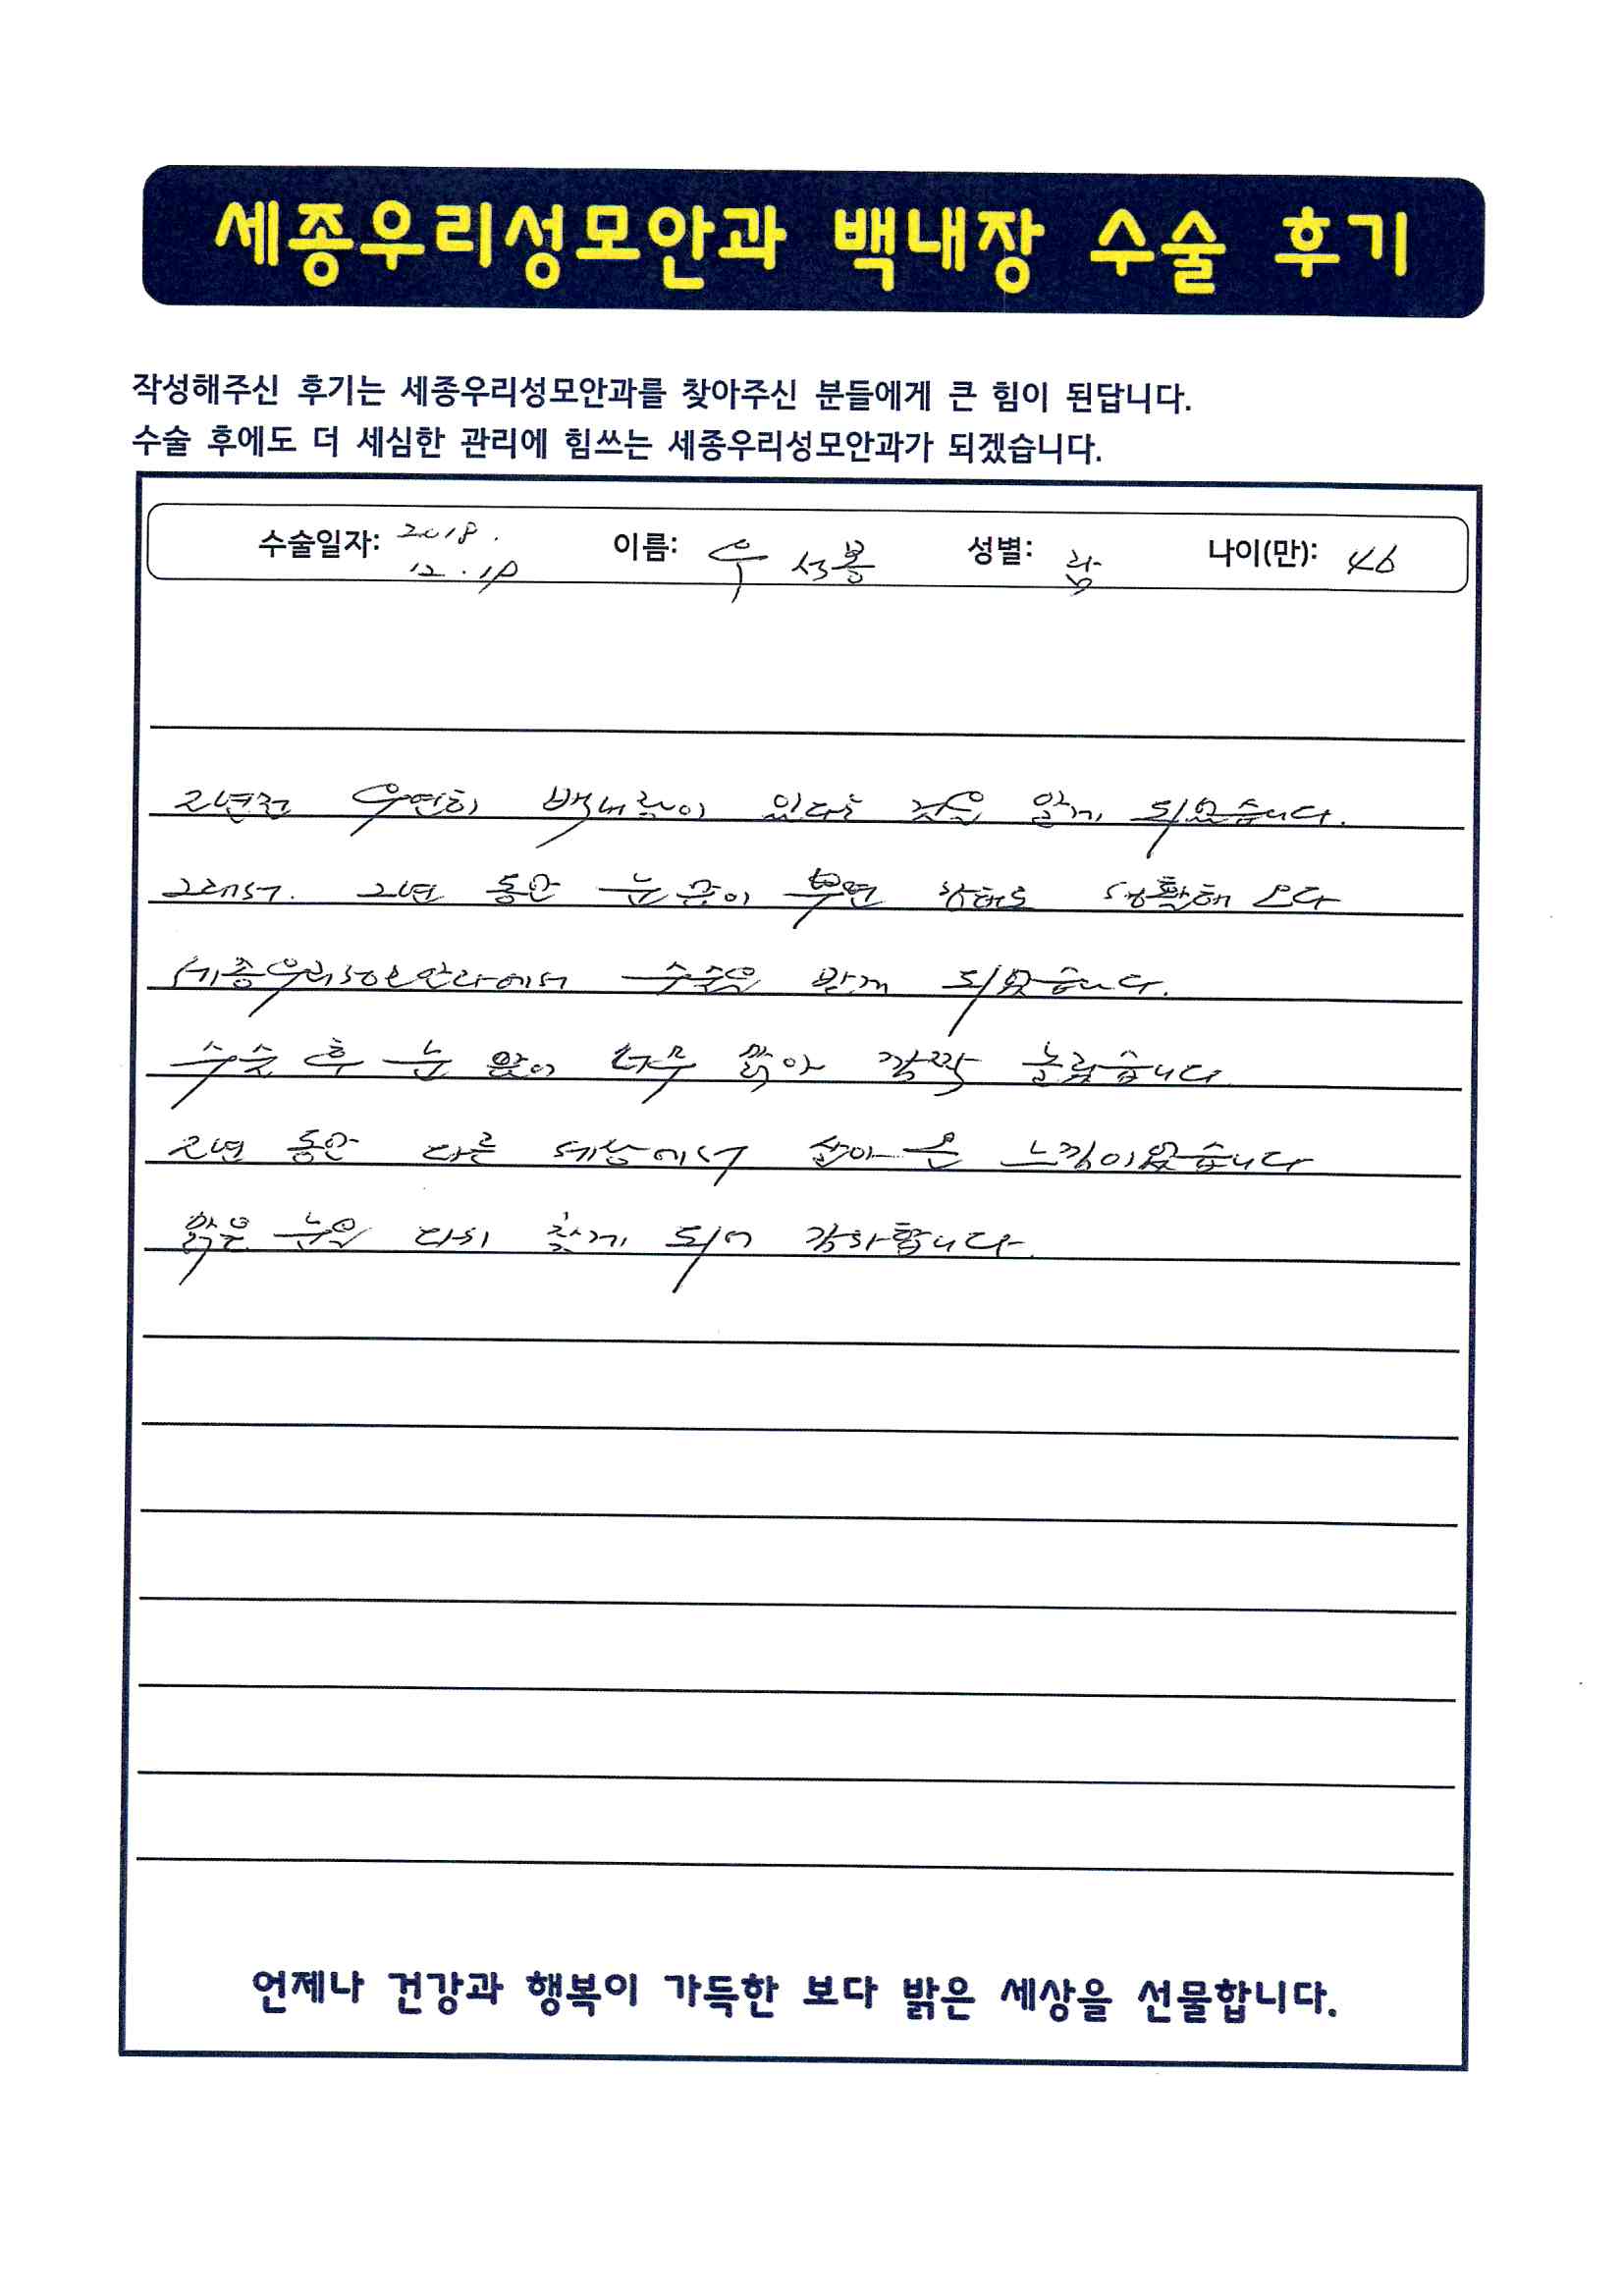 세종우리성모안과 백내장 수술 후기
작성해주신 후기는 세종우리성모안과를 찾아주신 분들에게 큰 힘이 된답니다.
수술 후에도 더 세심한 관리에 힘쓰는 세종우리성모안과가 되겠습니다.
수술일자: 2018. 12. 이름: 우 성봉 성별: 남 나이(만): 46
2년전 우연히 백내장이 있다는 것을 알게 되었습니다.
그래서. 2년 동안 눈 뿌연 상태로 생활해 오다
세종우리성모안과에서 수술을 받게 되었습니다.
수술 후 눈 앞이 너무 맑아 깜짝 놀랐습니다
2년 동안 다른 세상에서 살아 온 느낌이였습니다
맑은 눈을 다시 찾게 되어 감사합니다.
언제나 건강과 행복이 가득한 보다 밝은 세상을 선물합니다.